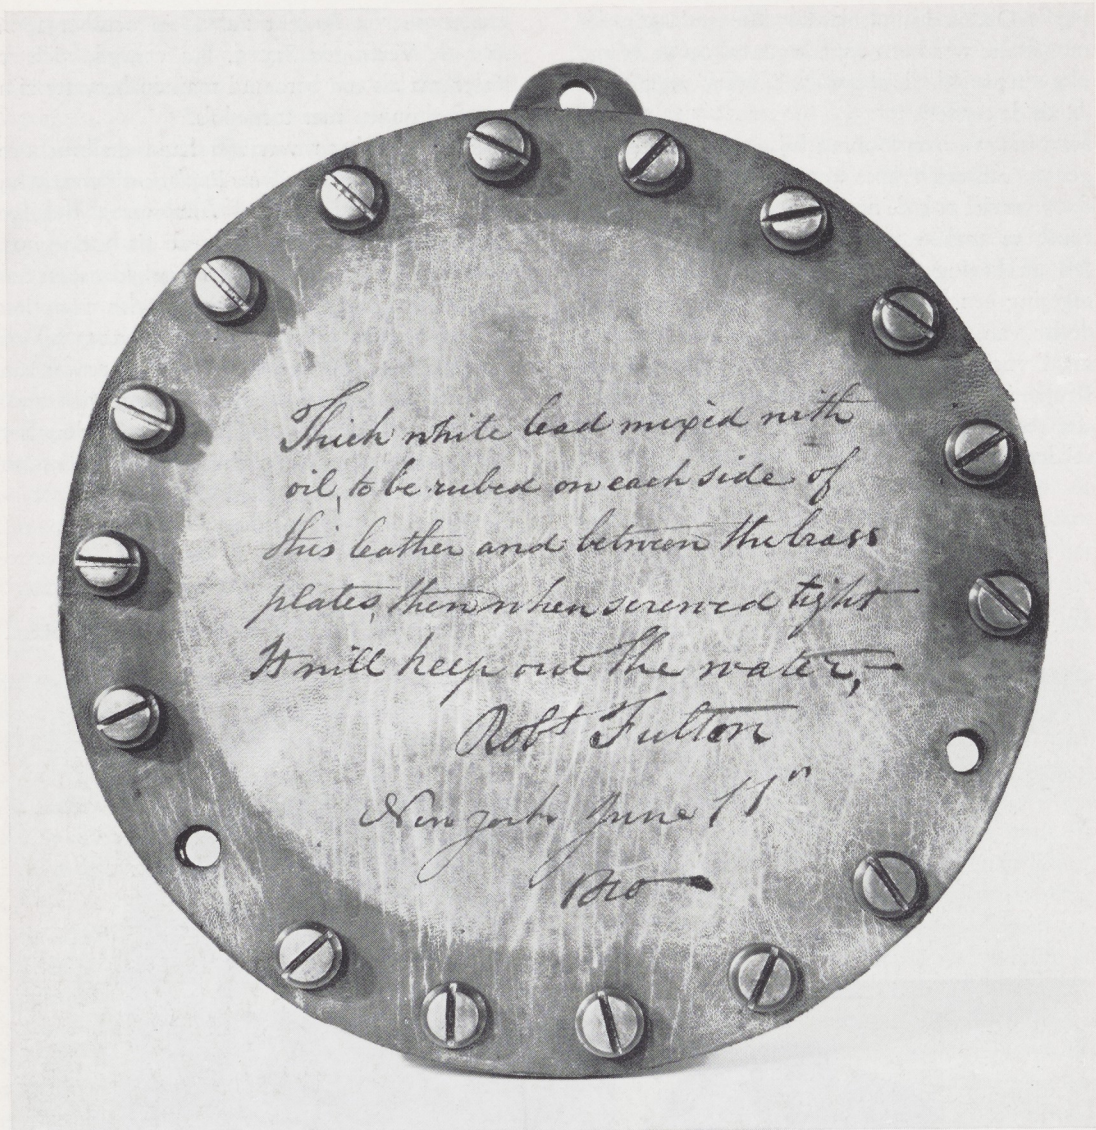 Thick white lead mixed with
oil, to be rubed on each side of
this leather and between the brass
plates, then when screwed tight
It will keep out the water,—
Robt Fulton
New york June
1810